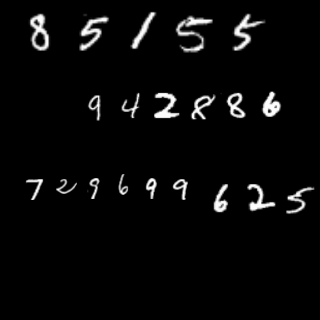 85155
942886
729699625